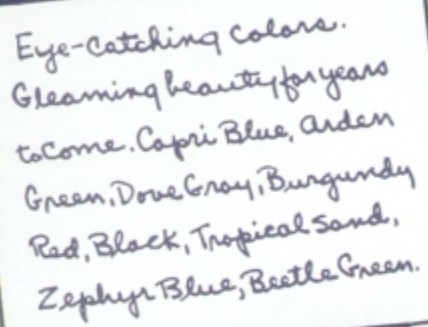 Eye-catching colors.
Gleaming beauty for years
to come. Capri Blue, Arden
Green, Dove Gray, Burgundy
Red, Black, Tropical Sand,
Zephyr Blue, Beetle Green.